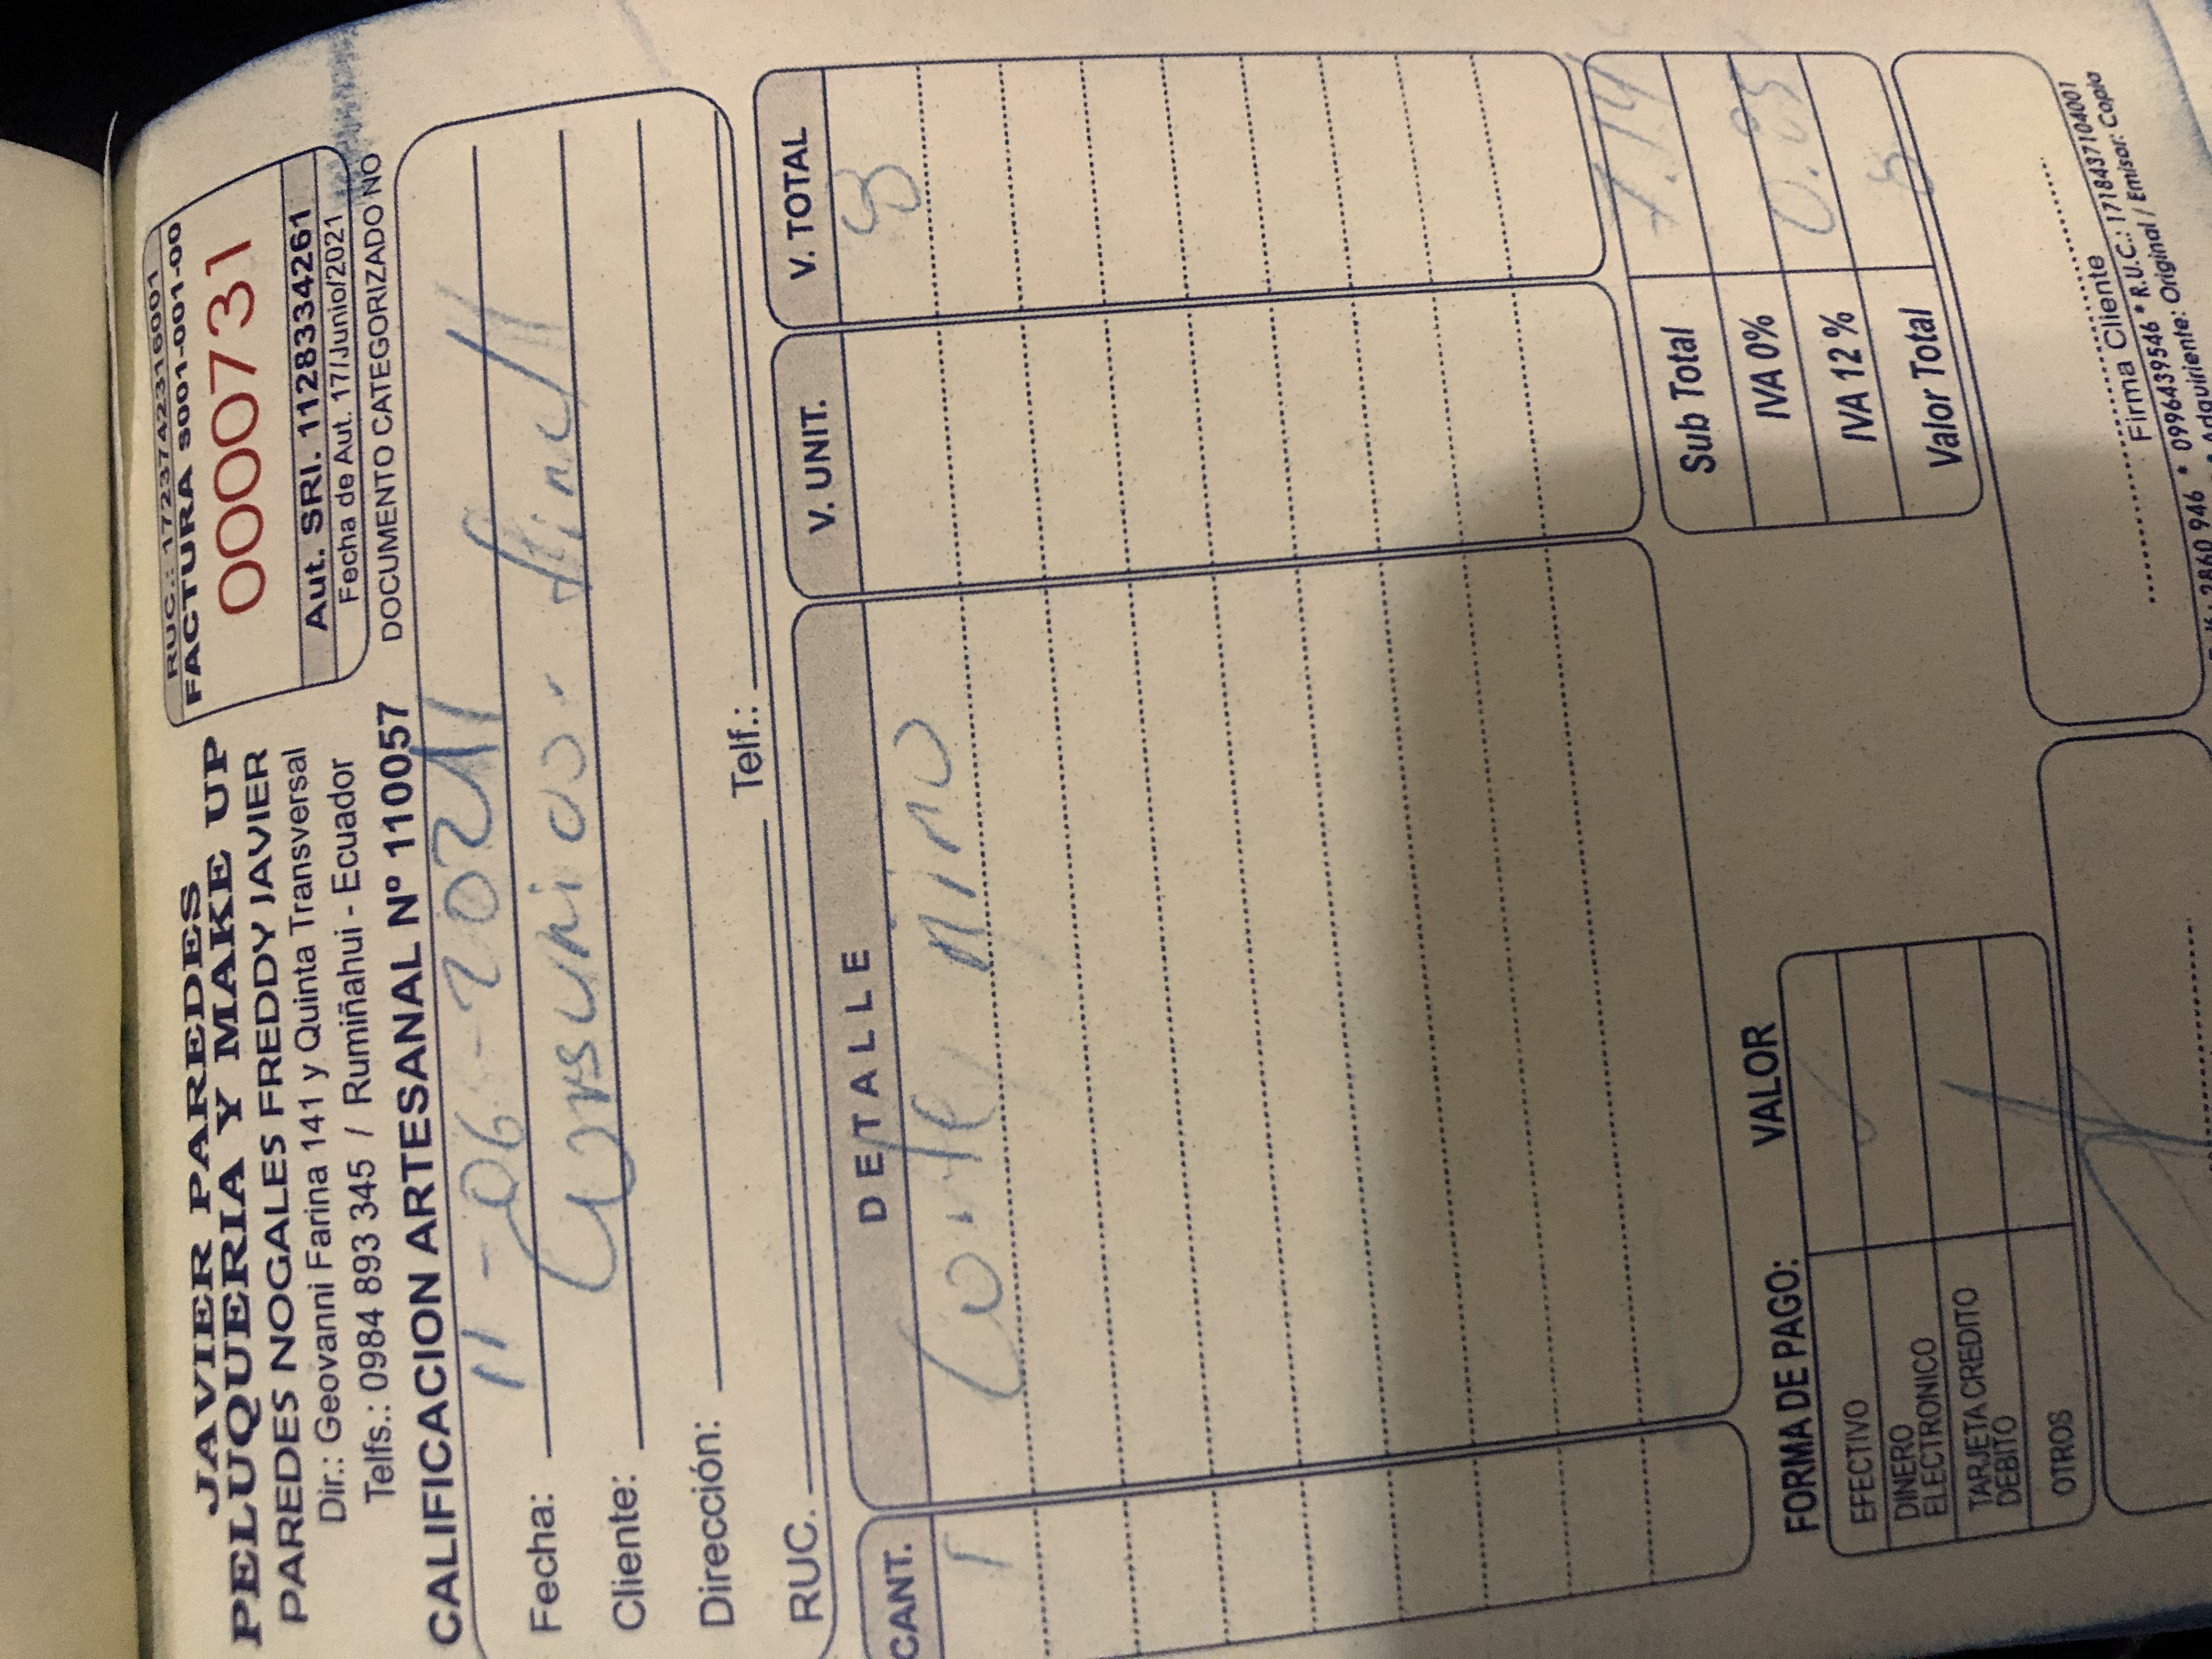 JAVIER PAREDES
PELUQUERIA Y MAKE UP
PAREDES NOGALES FREDDY JAVIER
Dir.: Geovanni Farina 141 y Quinta Transversal
Telfs.: 0984 893 345 / Rumiñahui - Ecuador
CALIFICACION ARTESANAL Nº 110057
RUC.: 1723742316001
FACTURA S001-001-00
0000731
Aut. SRI. 1128334261
Fecha de Aut. 17/Junio/2021
DOCUMENTO CATEGORIZADO NO
Fecha: 11-06-2021
Cliente:
Dirección:
RUC. Telf.:
CANT. DETALLE V. UNIT. V. TOTAL
1 Corte niño 8
Sub Total 7.14
IVA 0%
IVA 12 % 0.85
Valor Total 8
FORMA DE PAGO: VALOR
EFECTIVO ✓
DINERO
ELECTRONICO
TARJETA CREDITO
DEBITO
OTROS
Firma Cliente
2860 946 * 0996439546 * R.U.C.: 1718437104001
* Adquiriente: Original / Emisor: Copia